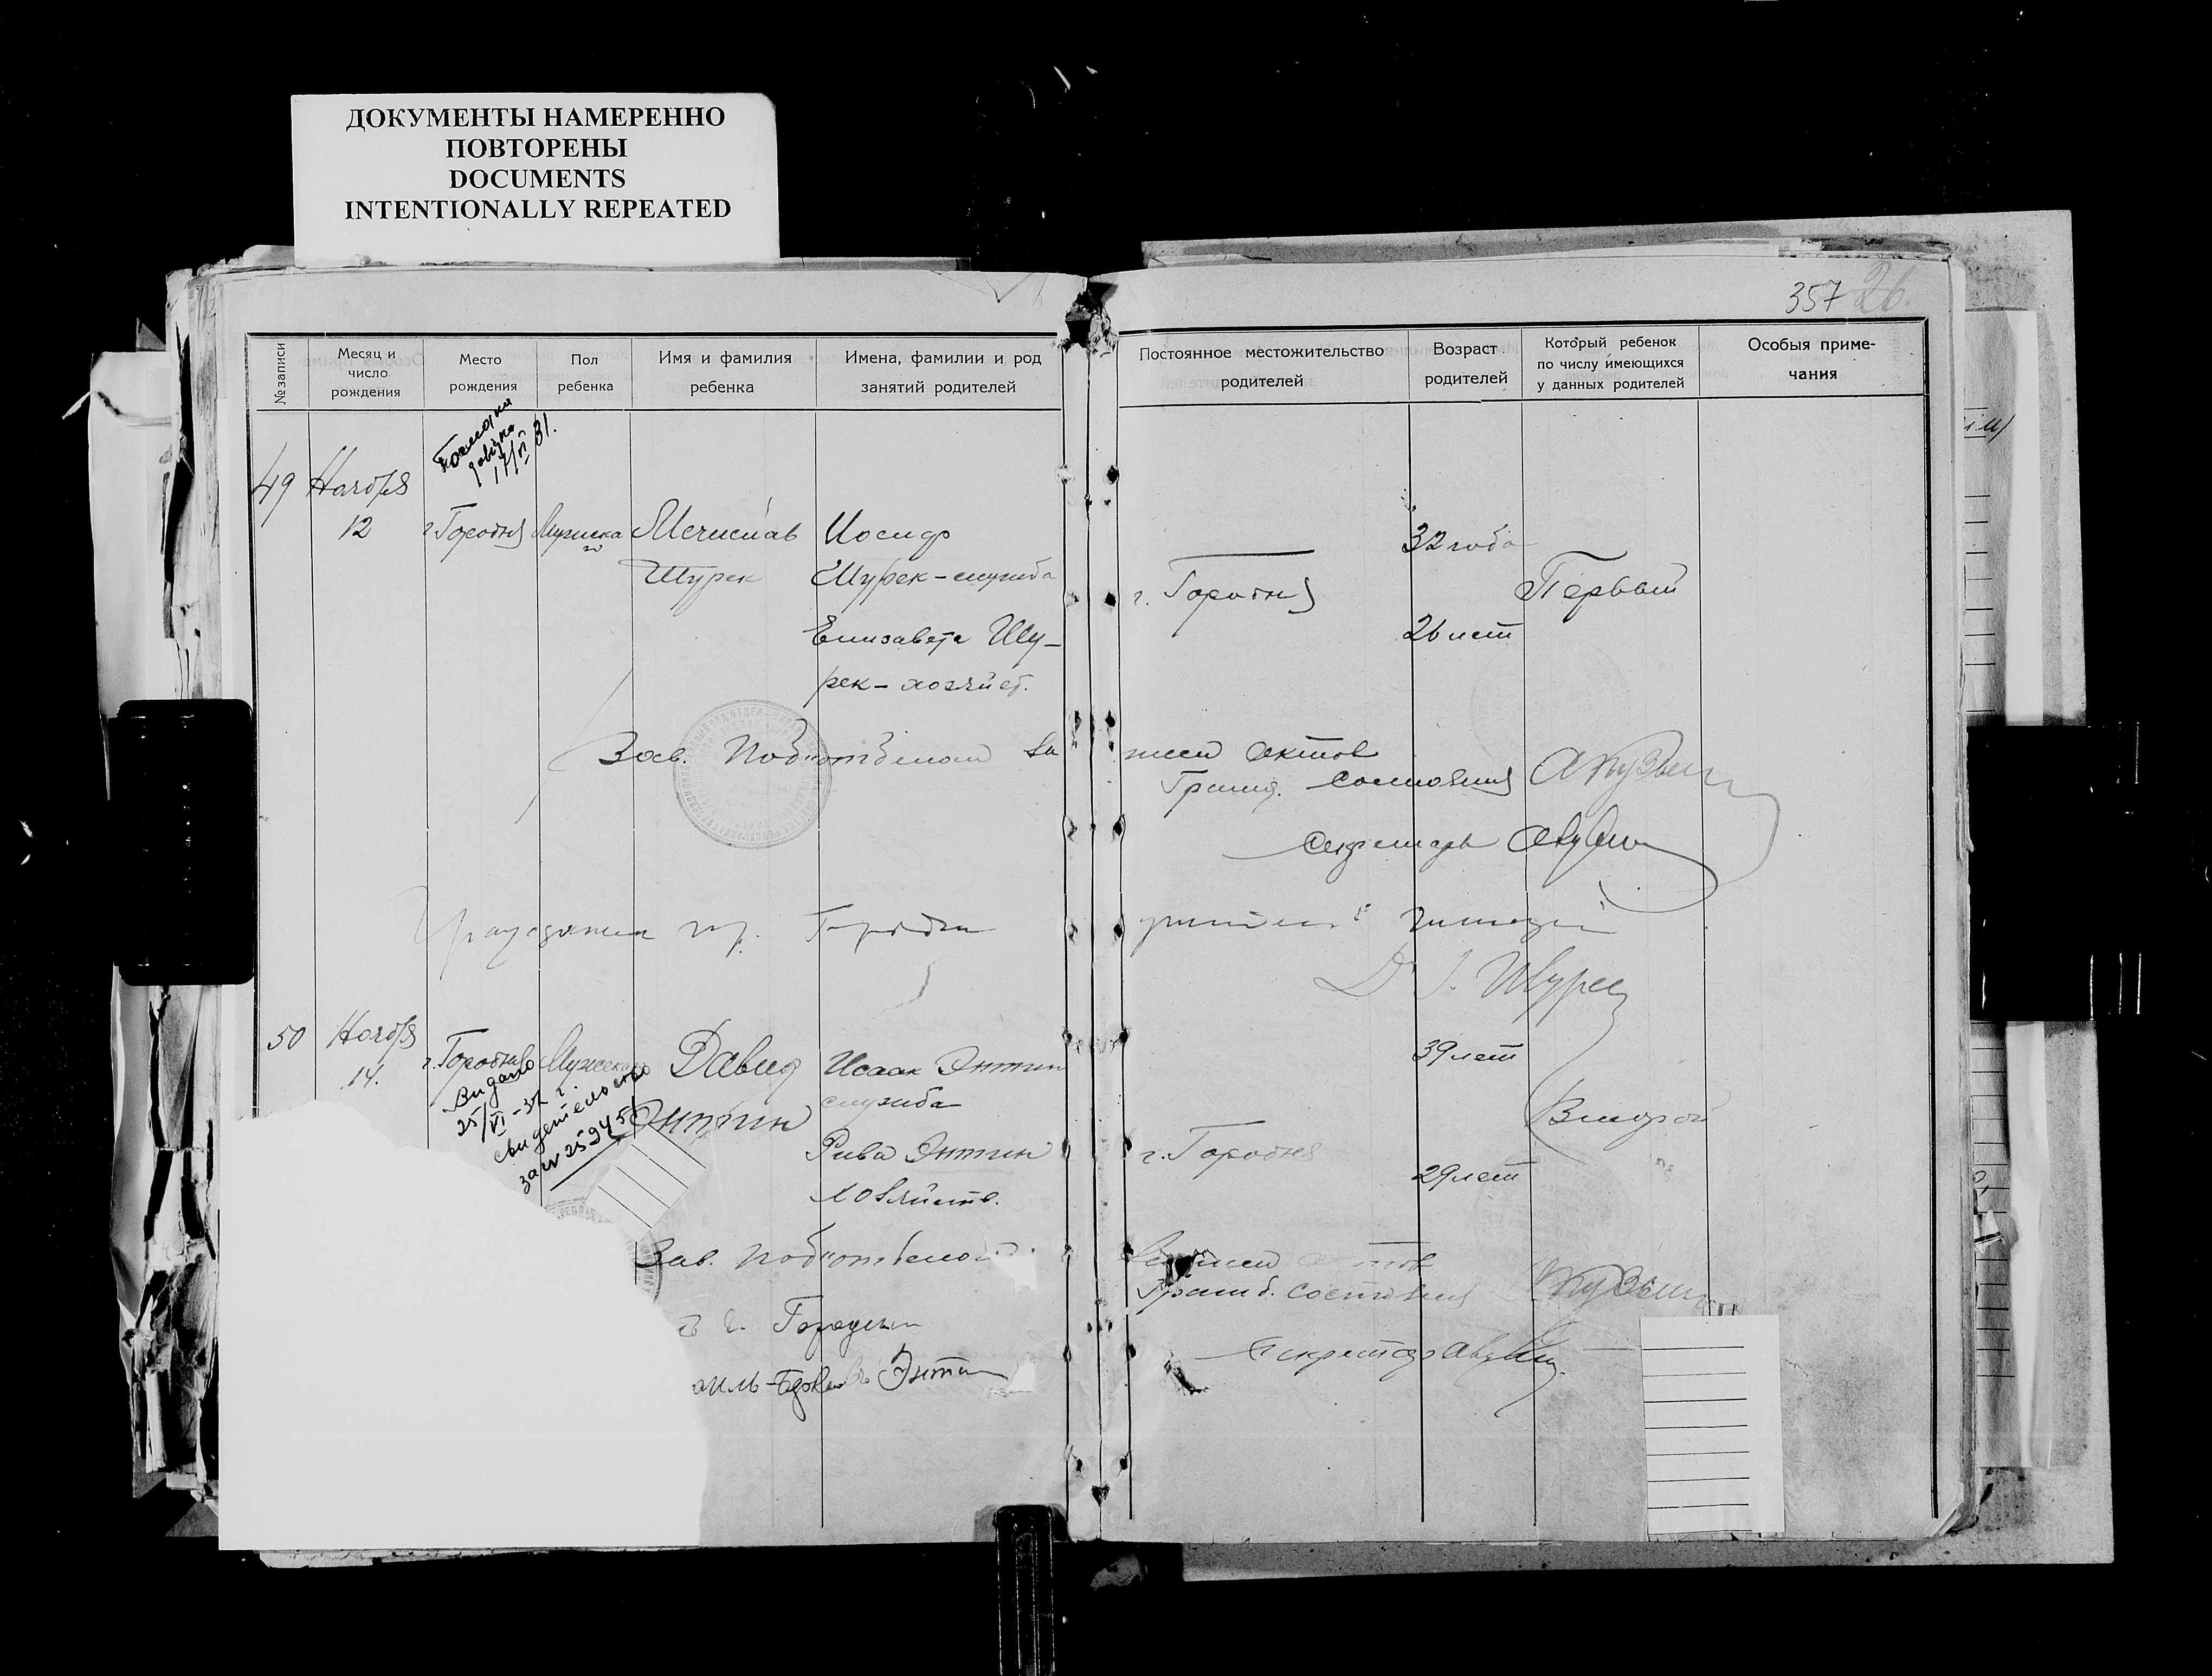 ДОКУМЕНТЫ НАМЕРЕННО
ПОВТОРЕНЫ
DOCUMENTS
INTENTIONALLY REPEATED
357 26.
№ записи
Месяц и
число
рождения
Место
рождения
Пол
ребенка
Имя и фамилия
ребенка
Имена, фамилии и род
занятий родителей
Постоянное местожительство
родителей
Возраст
родителей
Который ребенок
по числу имеющихся
у данных родителей
Особыя приме-
чания
17/VI 31.
49 Ноября
12 г. Городня Мужска
го
Мечислав
Шурек
Иосиф
Шурек - служба
Елизавета Шу-
рек - хозяйст.
г. Городня
32 года
26 лет
Первый
Зав. Подъотделом за
писи актов
Гражд. состояния
Секретарь
Гражданин гор. Городни
Шурек
50 Ноября
14.
г. Городня Мужска
Видано
25/VI - 32 г.
свидетельство
за № 25245
Давид
Энтин
Исаак Энтин
служба
Рива Энтин
хозяйств.
г. Городня
39 лет
29 лет
Второй
Зав. Подъотделом
записи актов
Гражд. состояния
Секретарь
г. Городни
Энтин